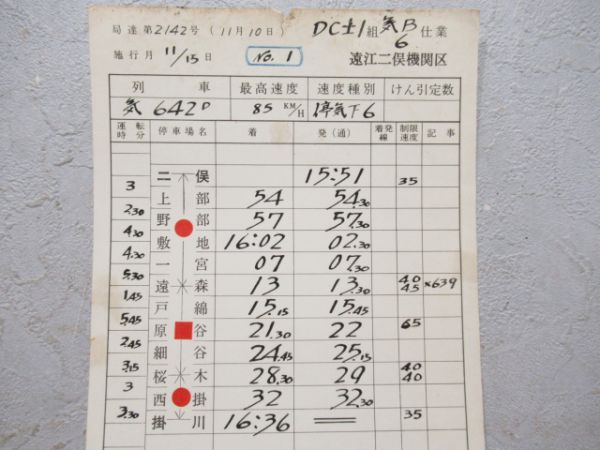 局達第2142号 (11月10日) DC士1組気B仕業
6
施行月 11/15日 No.1 遠江二俣機関区
列 車 最高速度 速度種別 けん引定数
気 642D 85 KM/H 停気下6
運転時分 停車場名 着 発(通) 着発線 制限速度 記事
二俣 15:51 35
3
上部 54 54.30
2.30
野部 57 57.30
4.30
敷地 16:02 02.30
4.30
一宮 07 07.30
5.30
遠森 13 13.30 40 45 ×639
1.45
戸綿 15.15 15.45
5.45
原谷 21.30 22 65
2.45
細谷 24.45 25.15
3.15
桜木 28.30 29 40 40
3
西掛 32 32.30
3.30
掛川 16:36 35